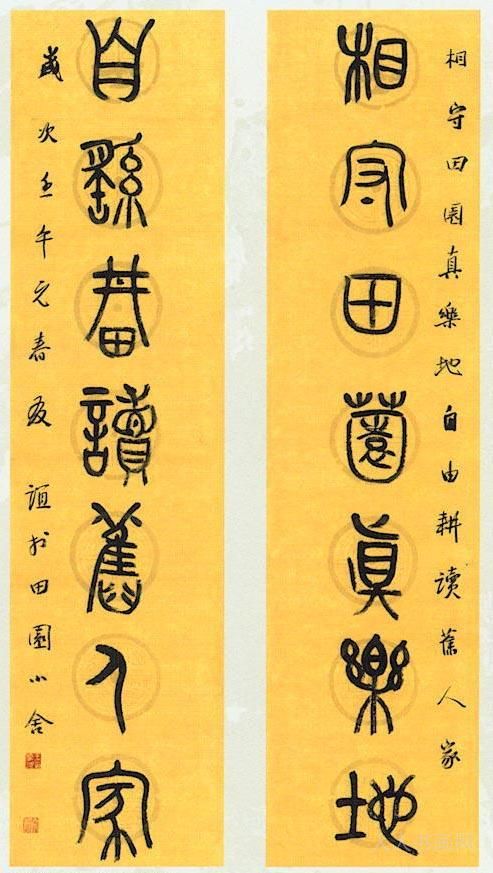 相守田園真樂地自由耕讀舊人家
相守田薗眞樂地
自繇畊讀舊人家
歲次壬午元春友誼田園小舍